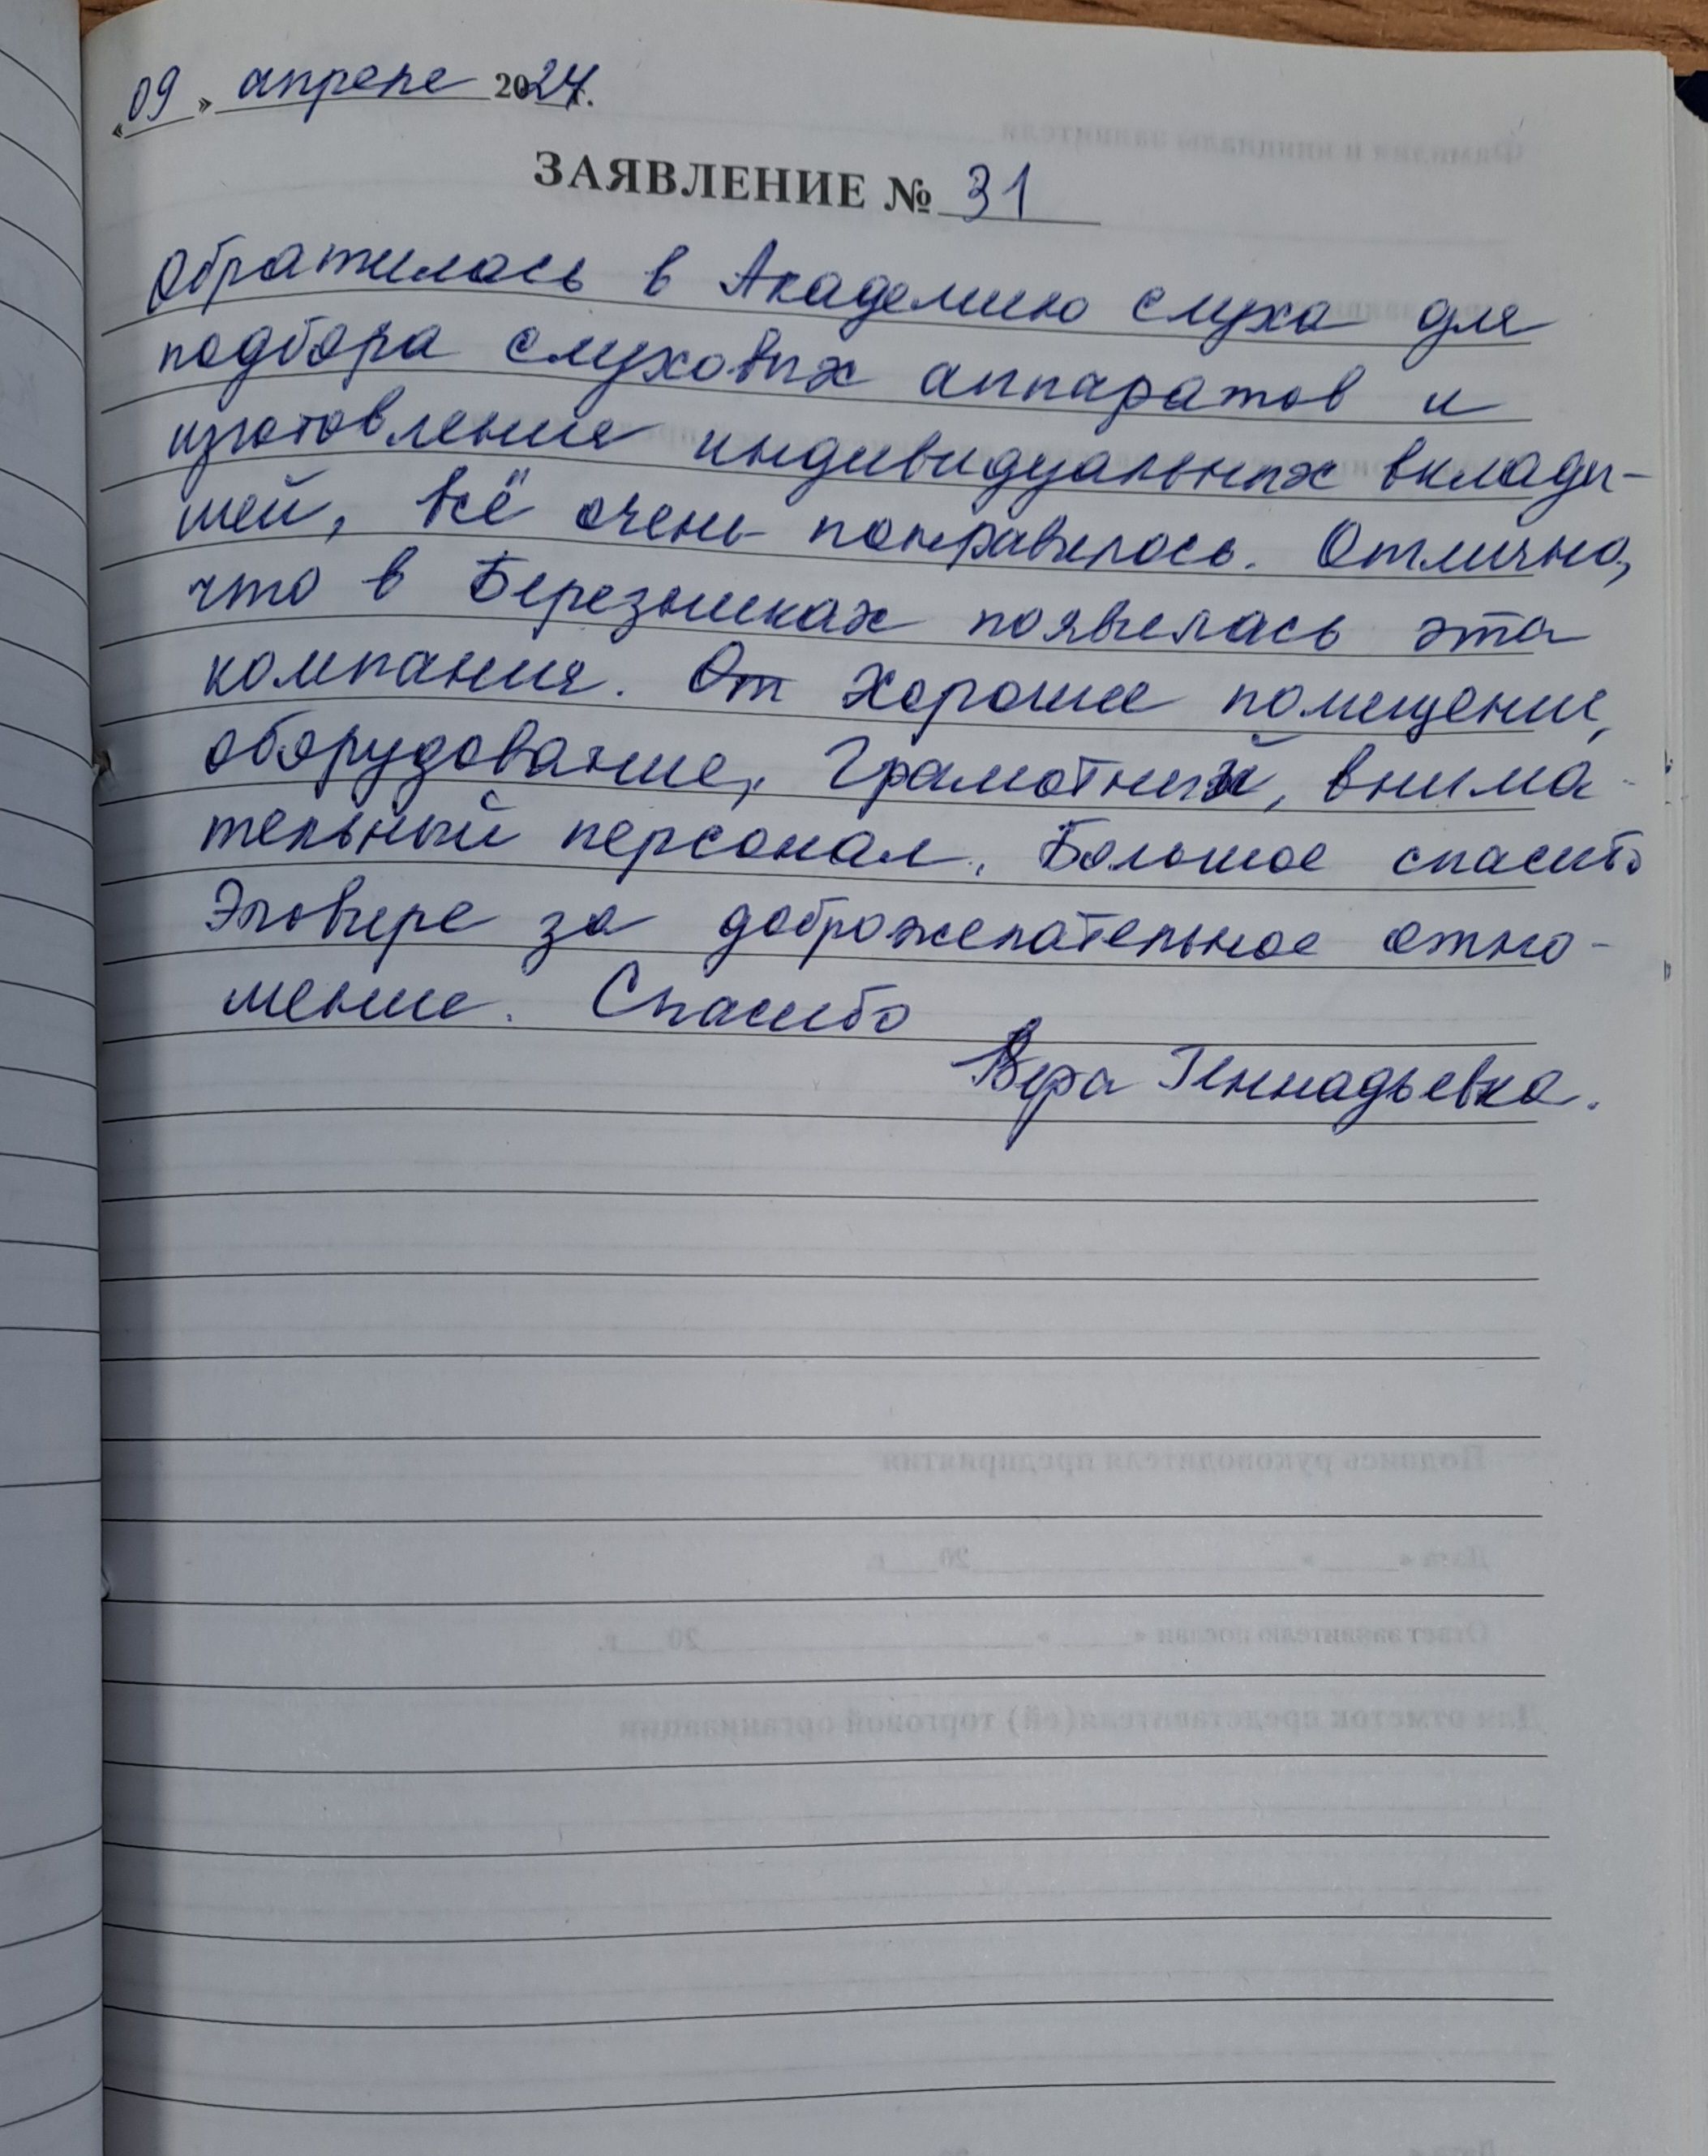 «09» апреля 2024г.
ЗАЯВЛЕНИЕ № 31
Обратилась в Академию слуха для
подбора слуховых аппаратов и
изготовление индивидуальных вклады-
шей, всё очень понравилось. Отлично,
что в Березниках появилась эта
компания. От Хорошее помещение,
оборудование, Грамотный, внима-
тельный персонал. Большое спасибо
Эльвире за доброжелательное отно-
шение. Спасибо
Вера Геннадьевна.